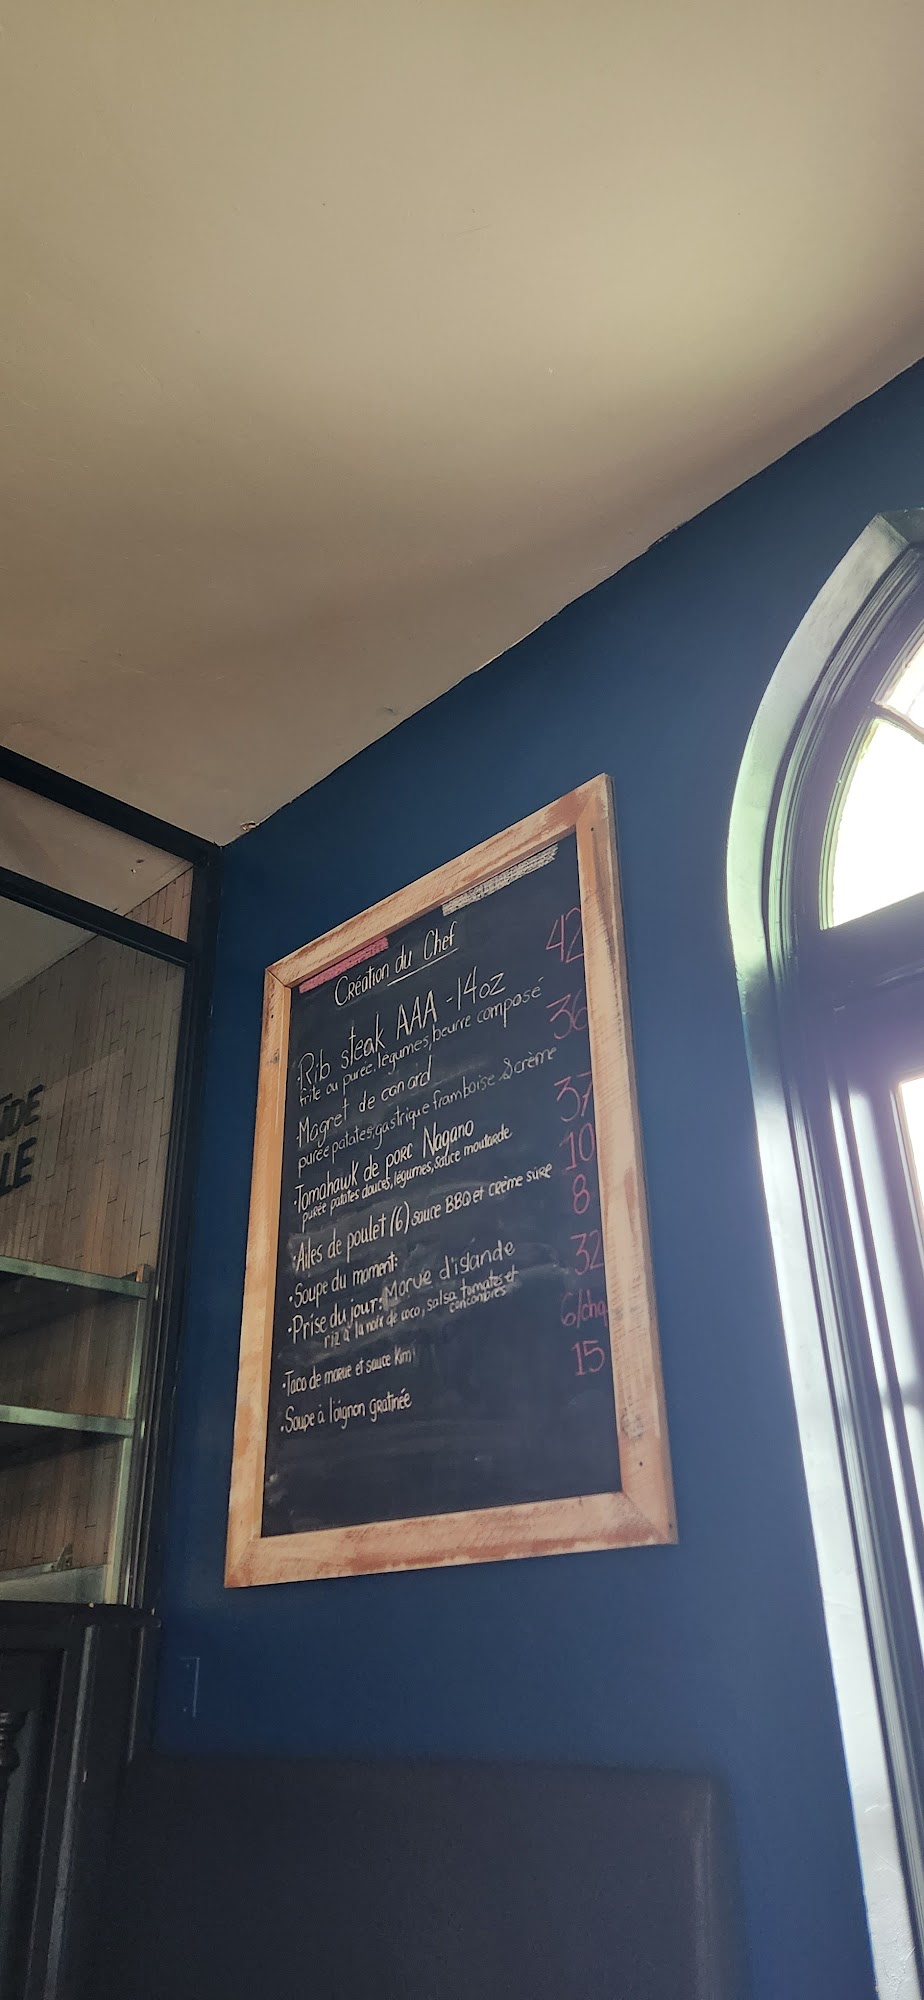 Création du Chef
·Rib steak AAA - 14oz 42
frite ou purée, légumes, beurre composé
·Magret de canard 36
purée patates, gastrique framboise & crème
·Tomahawk de porc Nagano 37
purée patates douces, légumes, sauce moutarde
·Ailes de poulet (6) sauce BBQ et crème sure 10
·Soupe du moment: 8
·Prise du jour: Morue d'islande 32
riz à la noix de coco, salsa tomates et
concombres
·Taco de morue et sauce Kim 6/chq
·Soupe à l'oignon gratinée 15